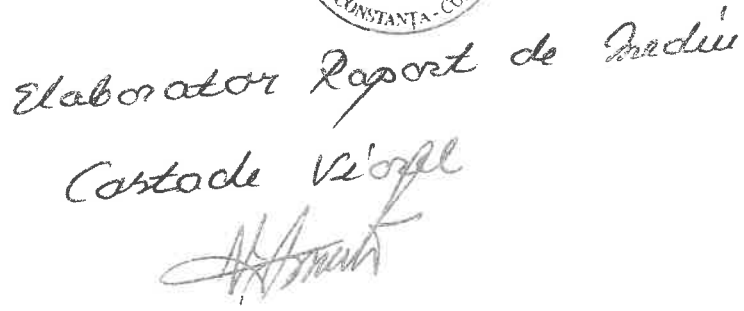 CONSTANŢA - CO
Elaborator Raport de Mediu
Costache Viorel